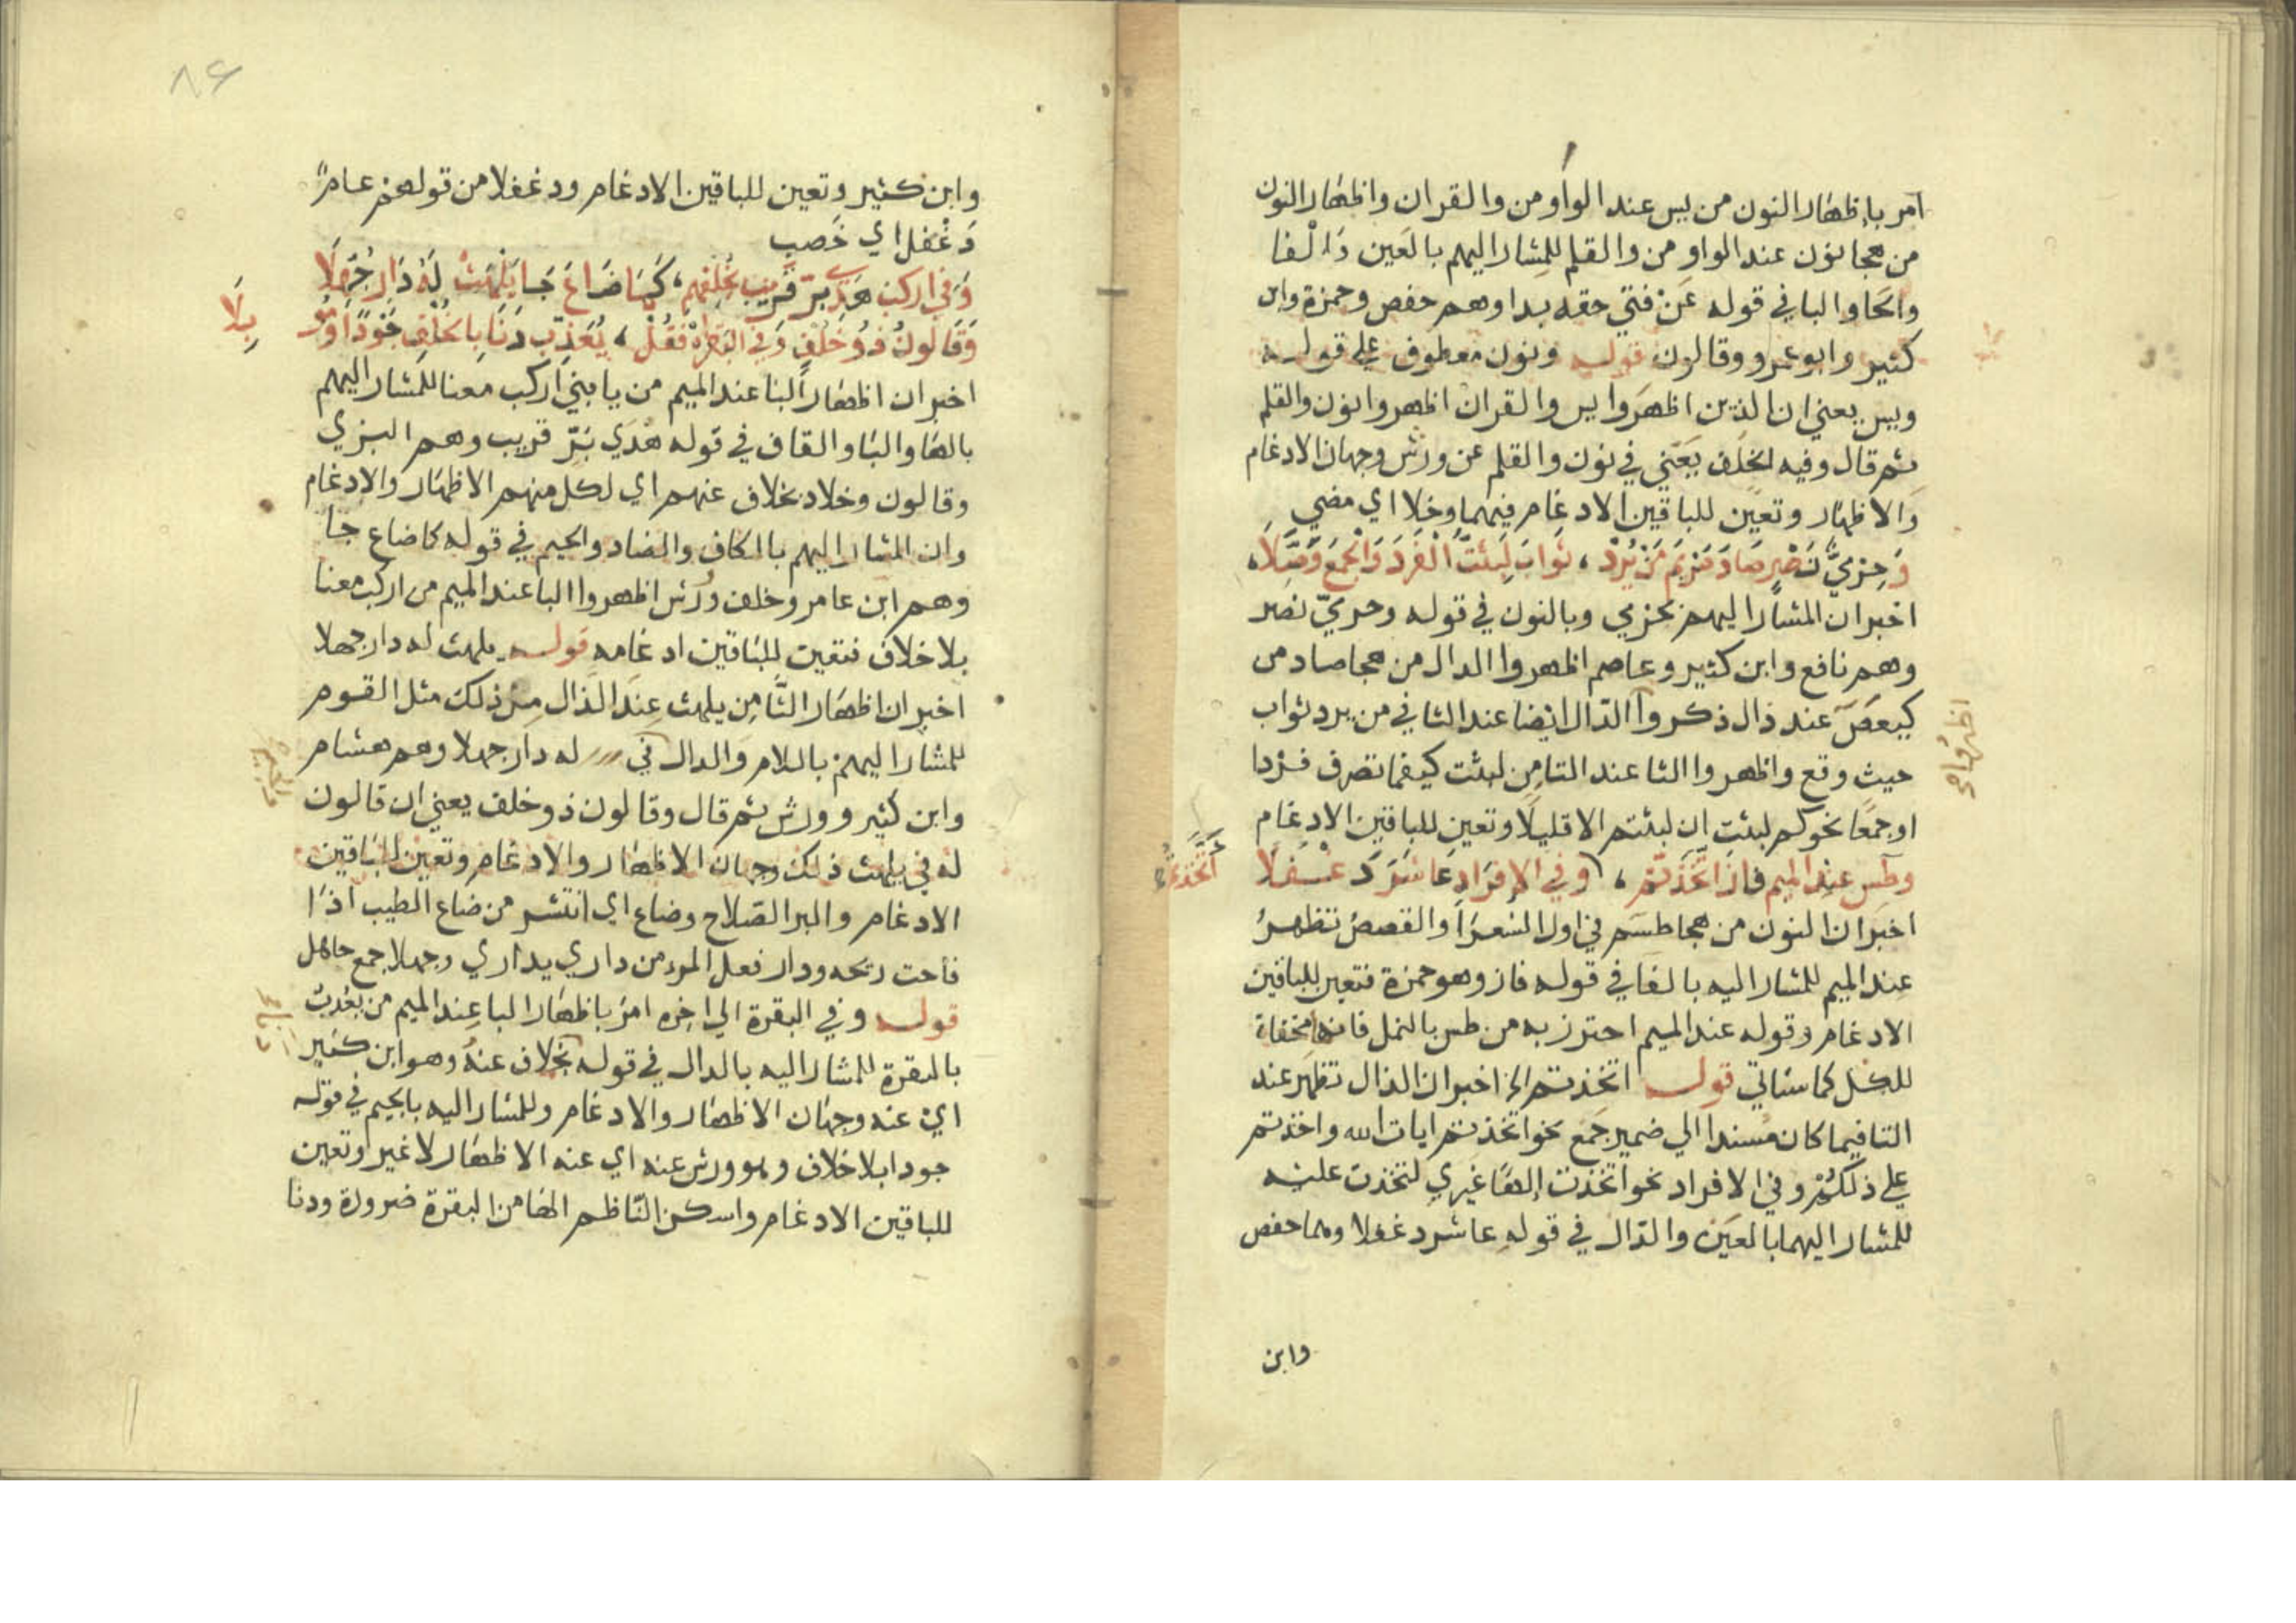 امر باظهار النون من يس عند الواو من والقران واظهار النون
من هجا نون عند الواو من والقلم للمشار اليهم بالعين والفا
والحا والبا في قوله عن فتي حقه بدا وهم حفص وحمزة وابن
كثير وابو عمرو وقالون قوله ونون معطوف علي قوله
ويس يعني ان الذين اظهروا يس والقران اظهروا نون والقلم
ثم قال وفيه الخلف يعني في نون والقلم عن ورش وجهان الادغام
والاظهار وتعين للباقين الادغام فيهما وخلا اي مضي
وَحِرْميُّ نَصْرٍ صَادَ مَرْيَمَ مَنْ يُرِدْ، ثَوَابَ لَبِثْتَ الْفَرْدَ وَالْجَمْعَ وَصَّلَا،
اخبر ان المشار اليهم بحرمي وبالنون في قوله وحرميّ نصر
وهم نافع وابن كثير وعاصم اظهروا الدال من هجا صاد من
كهيعص عند ذال ذكر والدال ايضا عند الثا في من يرد ثواب
حيث وقع واظهروا الثا عند التا من لبثت كيفما تصرف فردا
او جمعا نحو كم لبثت ان لبثتم الا قليلا وتعين للباقين الادغام
وطس عند الميم فاز اتخذتم، وفي الافراد عاشر دغفلا
اخبر ان النون من هجا طسم في اول الشعرا والقصص تظهر
عند الميم للمشار اليه بالفا في قوله فاز وهو حمزة فتعين للباقين
الادغام وقوله عند الميم احترز به من طس بالنمل فانها مخفاة
للكل كما سياتي قوله اتخذتم الخ اخبر ان الذال تظهر عند
التا فيما كان مسندا الي ضمير جمع نحو اتخذتم ايات الله واخذتم
علي ذلكم وفي الافراد نحو اتخذت الها غيري لتخذت عليه
للمشار اليهما بالعين والدال في قوله عاشر دغفلا وهما حفص
وابن
٨٤
وابن كثير وتعين للباقين الادغام ودغفلا من قولهم عام
دغفل اي خصب
وَفي اركب هدي برّ قريب بخلفهم، كما ضاع جا يلهث له دار جهلا
وقالون ذو خلف وفي البقرة فقل، يعذب دنا بالخلف جودا ومو
بلا
اخبر ان اظهار البا عند الميم من يا بني اركب معنا للمشار اليهم
بالها والبا والقاف في قوله هدي برّ قريب وهم البزي
وقالون وخلاد بخلاف عنهم اي لكل منهم الاظهار والادغام
وان المشار اليهم بالكاف والضاد والجيم في قوله كما ضاع جا
وهم ابن عامر وخلف وورش اظهروا البا عند الميم من اركب معنا
بلا خلاف فتعين للباقين ادغامه قوله يلهث له دار جهلا
اخبر ان اظهار الثا من يلهث عند الذال من ذلك مثل القوم
للمشار اليهم باللام والدال في له دار جهلا وهم هشام
وابن كثير وورش ثم قال وقالون ذو خلف يعني ان قالون
له في يلهث ذلك وجهان الاظهار والادغام وتعين للباقين
الادغام والبر الصلاح وضاع اي انتشر من ضاع الطيب اذا
فاحت ريحه ودار فعل امر من داري يداري وجهلا جمع جاهل
قوله وفي البقرة الي اخره امر باظهار البا عند الميم من يعذب
بالبقرة للمشار اليه بالدال في قوله بخلاف عنه وهو ابن كثير
اي عنه وجهان الاظهار والادغام وللمشار اليه بالجيم في قوله
جودا بلا خلاف وهو ورش عنه اي عنه الاظهار لا غير وتعين
للباقين الادغام واسكن النّاظم الها من البقرة ضرورة ودنا